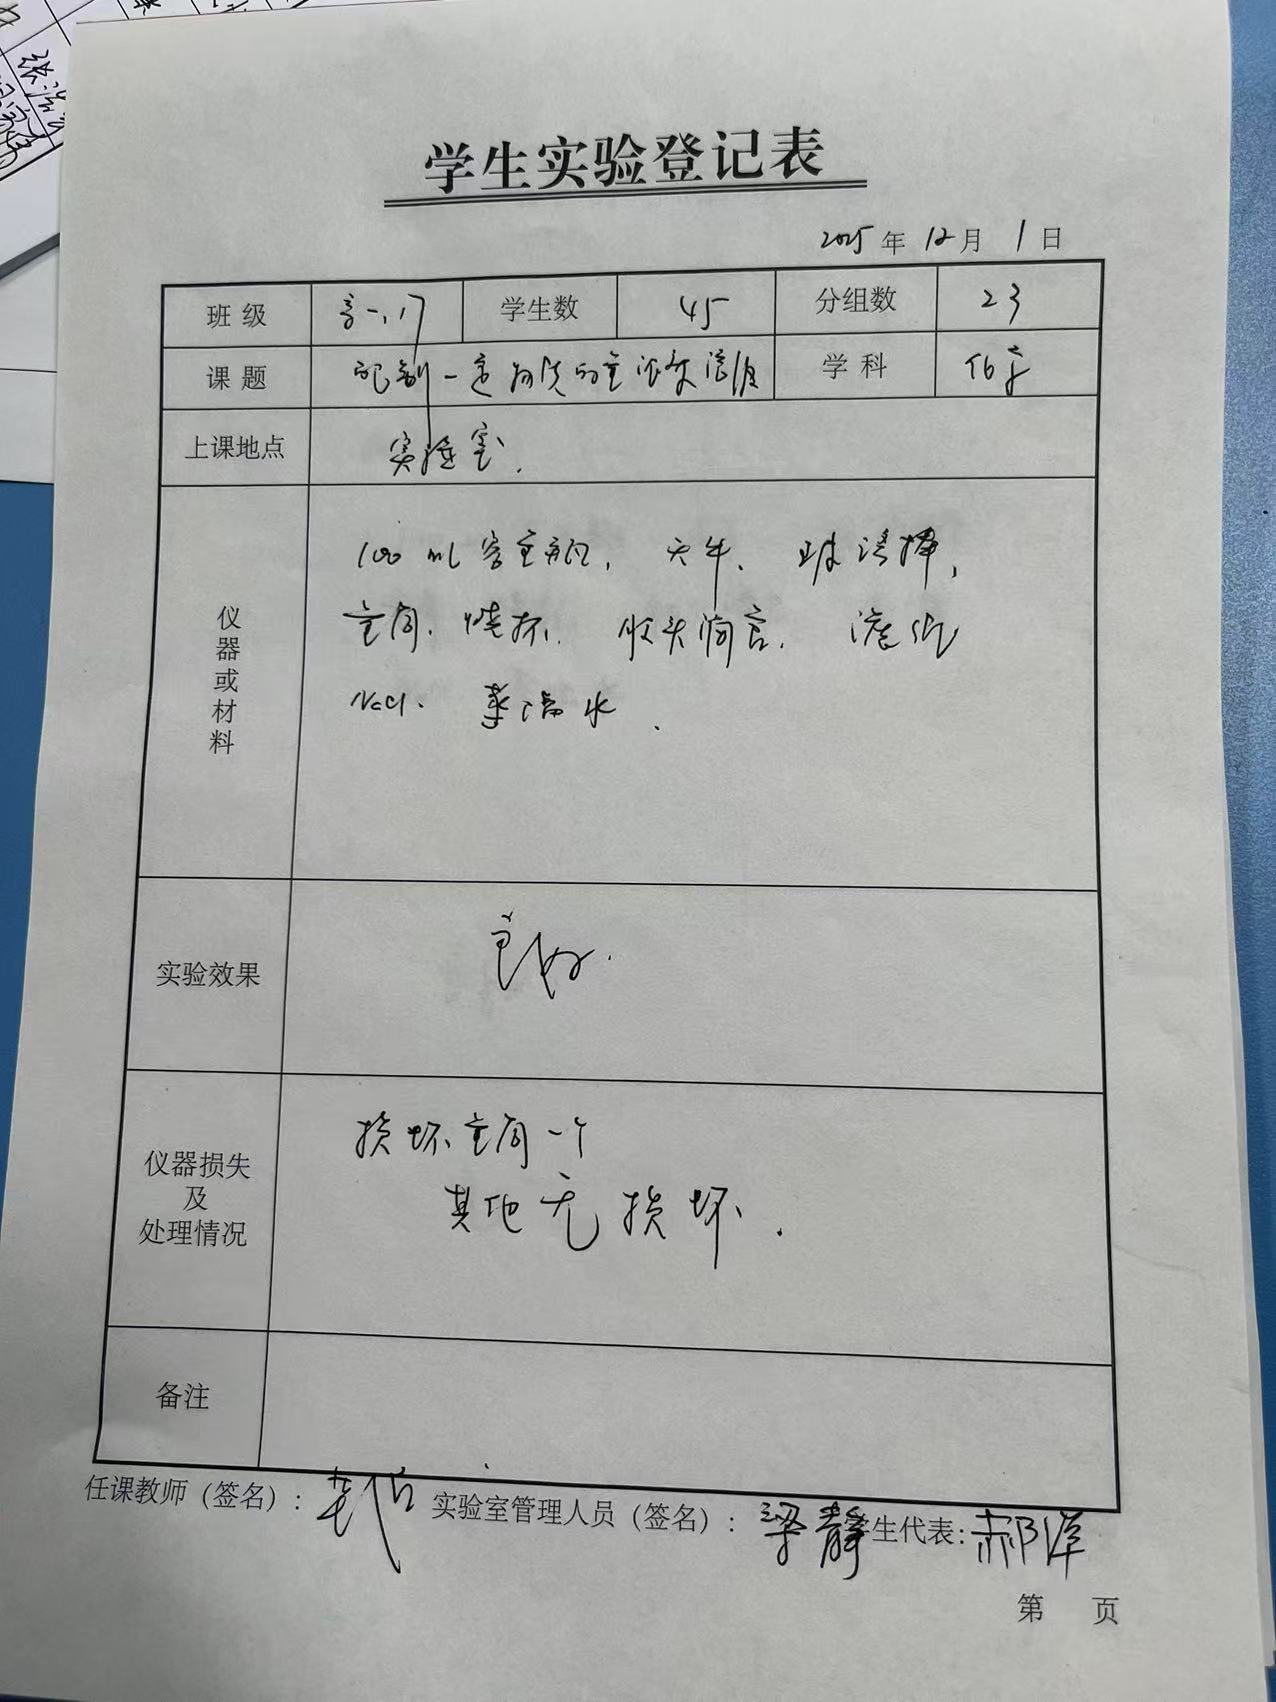 学生实验登记表
2025年12月1日
班级 高一.17 学生数 45 分组数 23
课题 配制一定物质的量浓度溶液 学科 化学
上课地点 实验室.
仪器或材料
100 mL容量瓶, 天平、 玻璃棒,
量筒、烧杯、 胶头滴管、 滤纸
NaCl、 蒸馏水.
实验效果 良好.
仪器损失及处理情况
损坏量筒一个
其他无损坏.
备注
任课教师(签名): 实验室管理人员(签名): 梁静 学生代表: 郝洋
第 页